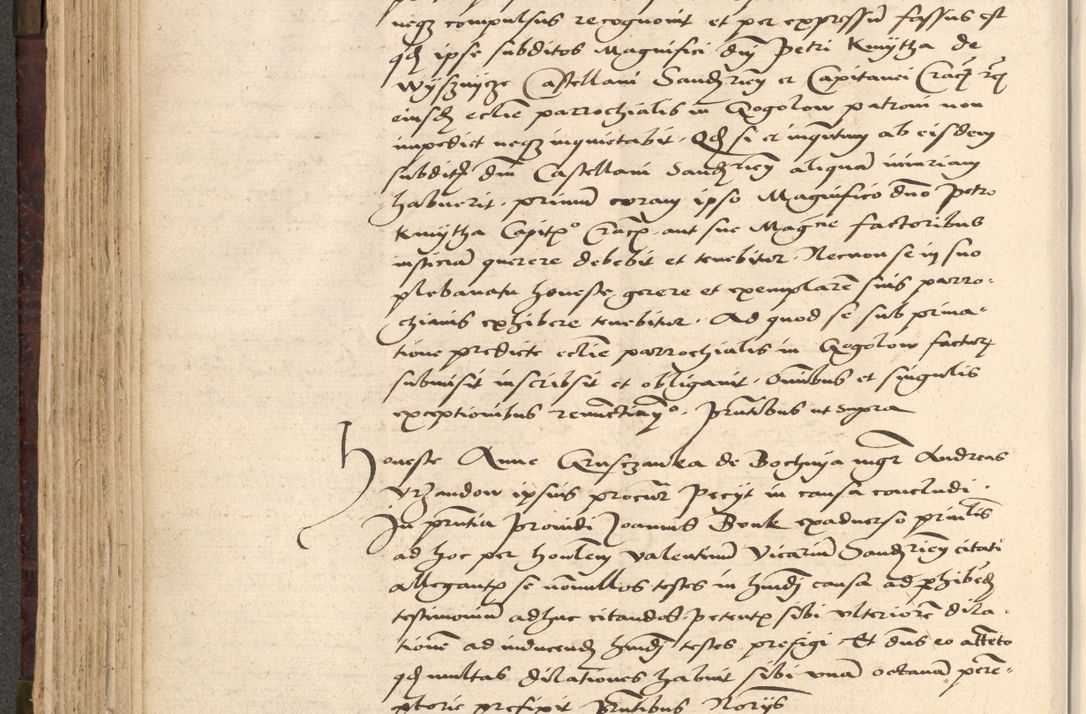 neqz compulsus recognovit et per expressum fassus est
qd ipse subditos Magnifici dni Petri Kmytha de
Wyssnycze Castellani Sandzrien et Capitanei Crac
eiusdz ecclie parrochialis in Gogolow patroni non
impediet neqz inquietabit. Qd si et inquntum ab eisdem
subditz dni Castellani Sandzrien aliquam iniuriam
habuerit. primum coram ipso Magnifico dno Petro
Kmytha Capito Crac. aut sue Magcie factoribus
iusticiam querere debebit et tenebitur. Necnon se in suo
plebanatu honeste gerere et exemplarem suis parro-
chianis exhibere tenebitur. Ad quod se sub priua-
tione predicte ecclie parrochialis in Gogolow
submisit inscribsit et obligavit. Omnibus et singulis
exceptionibus renunctians. Pntibus ut supra
Honeste Anne Gruszczanka de Bochnya mgr Andreas
Vrzandow ipsius procur Pecyt in causa concludi.
In pntia Providi Joannis Benk exadverso principalis
ad hoc per honblem Valentinum Vicarium Sandzrien citati
allegantis se nonnullos testes in hmdi causa ad phibedz
testimonium adhuc citandos. Petentis sibi ulteriorem dila-
tionem ad inducendz hmdj testes prefigi. Et dns eo attento
qd multas dilationes habuit sibi unam octavam perem-
ptorie prefixit Pntibus Notoriis